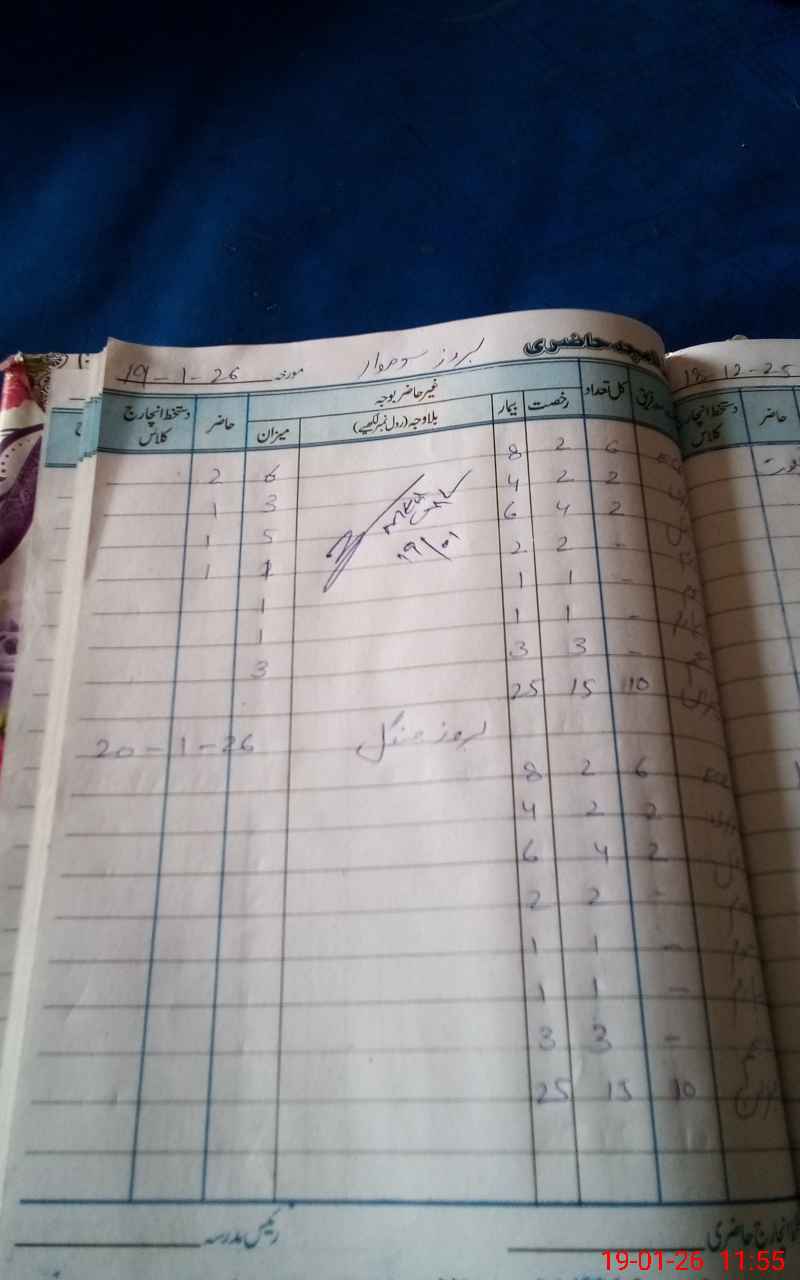 حاضری بروز سوموار مورخہ 19-1-26
کل تعداد رخصت بیمار غیر حاضر بوجہ حاضر دستخط انچارج کلاس
بلاوجہ (رول نمبر لکھیے) میزان
ECE 6 2 8 6 2
2 2 4 3 1
2 4 6 5 1
- 2 2 1 1
- 1 1 1
- 1 1 1
- 3 3 3
10 15 25
19/01
بروز منگل 20-1-26
ECE 6 2 8
2 2 4
2 4 6
- 2 2
- 1 1
- 1 1
- 3 3
10 15 25
انچارج حاضری رئیس مدرسہ
18-12-25
دستخط انچارج کلاس حاضر
19-01-26 11:55